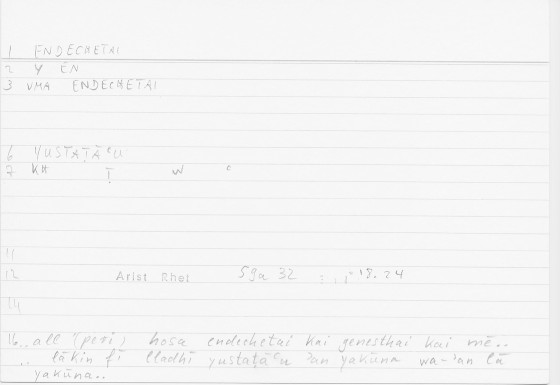 1 ENDECHETAI
2 Y EN
3 VMA ENDECHETAI
6 YUSTAṬĀʿU
7 KH Ṭ W ʿ
11
12 Arist Rhet 59a 32 18.24
14
16 ..all (peri) hosa endechetai kai genesthai kai mē..
.. lākin fī lladhī yustaṭāʿu ʾan yakūna wa-ʾan lā
yakūna..